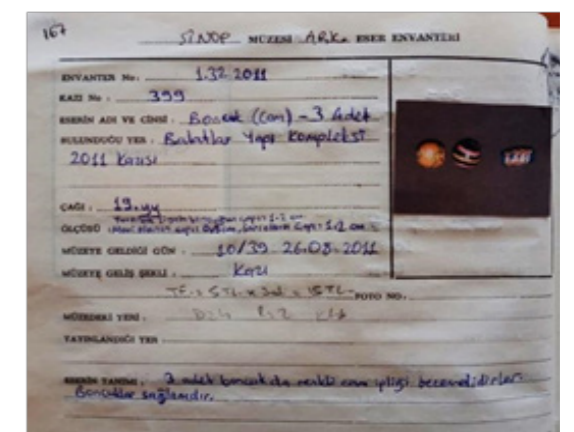 167
SİNOP MÜZESİ ARK. ESER ENVANTERİ
ENVANTER No. 1.32.2011
KAZI No. 399
ESERİN ADI VE CİNSİ. Boncuk (Cam) - 3 Adet
BULUNDUĞU YER. Balatlar Yapı Kompleksi
2011 Kazısı
ÇAĞI. 19.yy
ÖLÇÜSÜ
MÜZEYE GELDİĞİ GÜN. 10/39 26.08.2011
MÜZEYE GELİŞ ŞEKLİ. Kazı
5 TL x 3ad = 15 TL FOTO NO.
MÜZEDEKİ YERİ.
YAYINLANDIĞI YER
ESERİN TANIMI. 3 adet boncuk da renkli cam ipliği bezemelidirler.
Boncuklar sağlamdır.